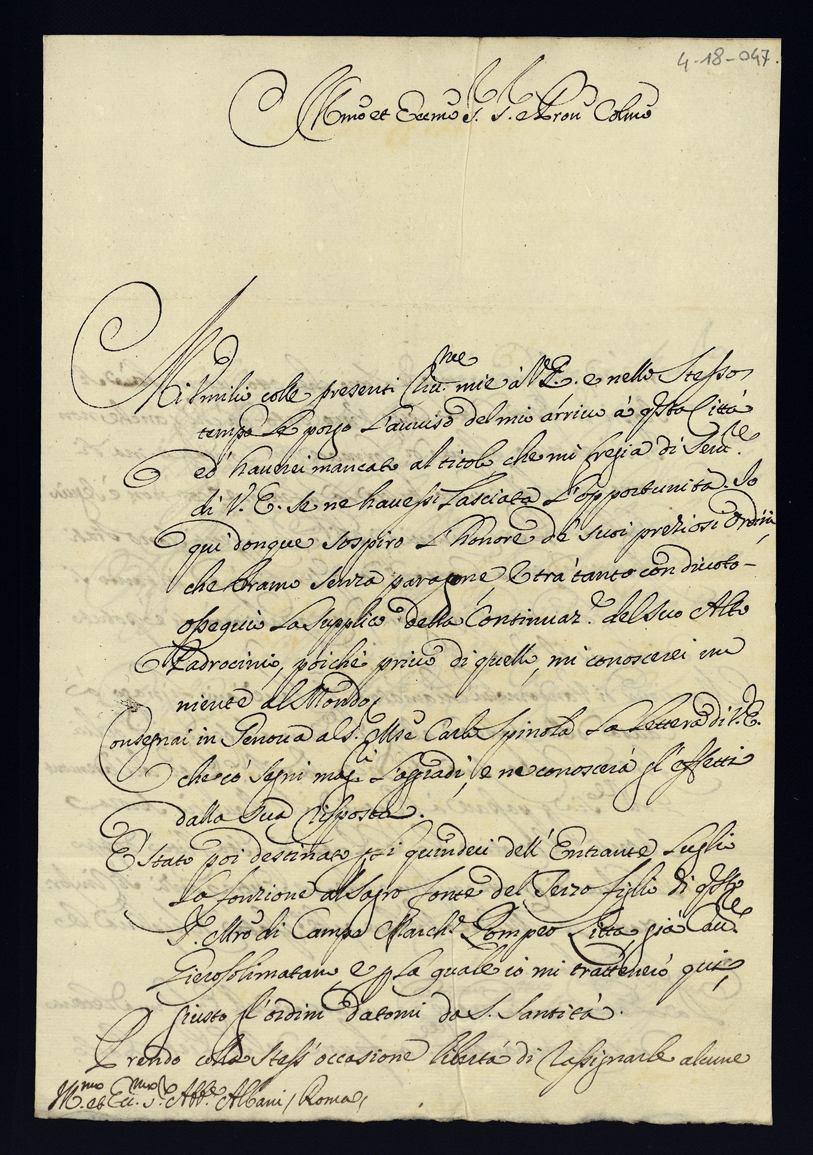 4-18-047.
Ill.mo et Eccmo S. S. e Pron Colmo
Mi Vmilio colle presenti Riu.me mie à V.E. e nello Stesso
tempo Le porgo l'auuiso del mio arriuo à qsta Città
ed haurei mancato al titolo che mi fregia di Seru.re
di V. E. se ne hauessi lasciata l'opportunità. Io
qui donque sospiro l'honore de suoi preziosi Ordini,
che bramo senza paragone, e trà tanto con diuoto
ossequio La supplico della Continuaz.e del suo Alto
Padrocinio, poiche priuo di quello, mi conoscerei un
niente al Mondo.
Consegnai in Genoua al S. Mse Carlo Spinola La Lettera di V.E.
che có segni mag.ri l'aggradì, e ne conoscerà gl'effetti
dalla sua Risposta.
E' stato poi destinato p i quindeci dell'Entrante Luglio
La fonzione al Sagro fonte del Terzo figlio di qsto
S. Mro di Campo March.e Pompeo Litta, già Cau.re
Gierosolimitano e p La quale io mi tratteneró qui,
giusto gl'ordini datomi da S. Santità.
Prendo colla stess'occasione libertà di rassignarle alcune
Ill.mo et Ecc.mo S. Abb.e Albani / Roma /